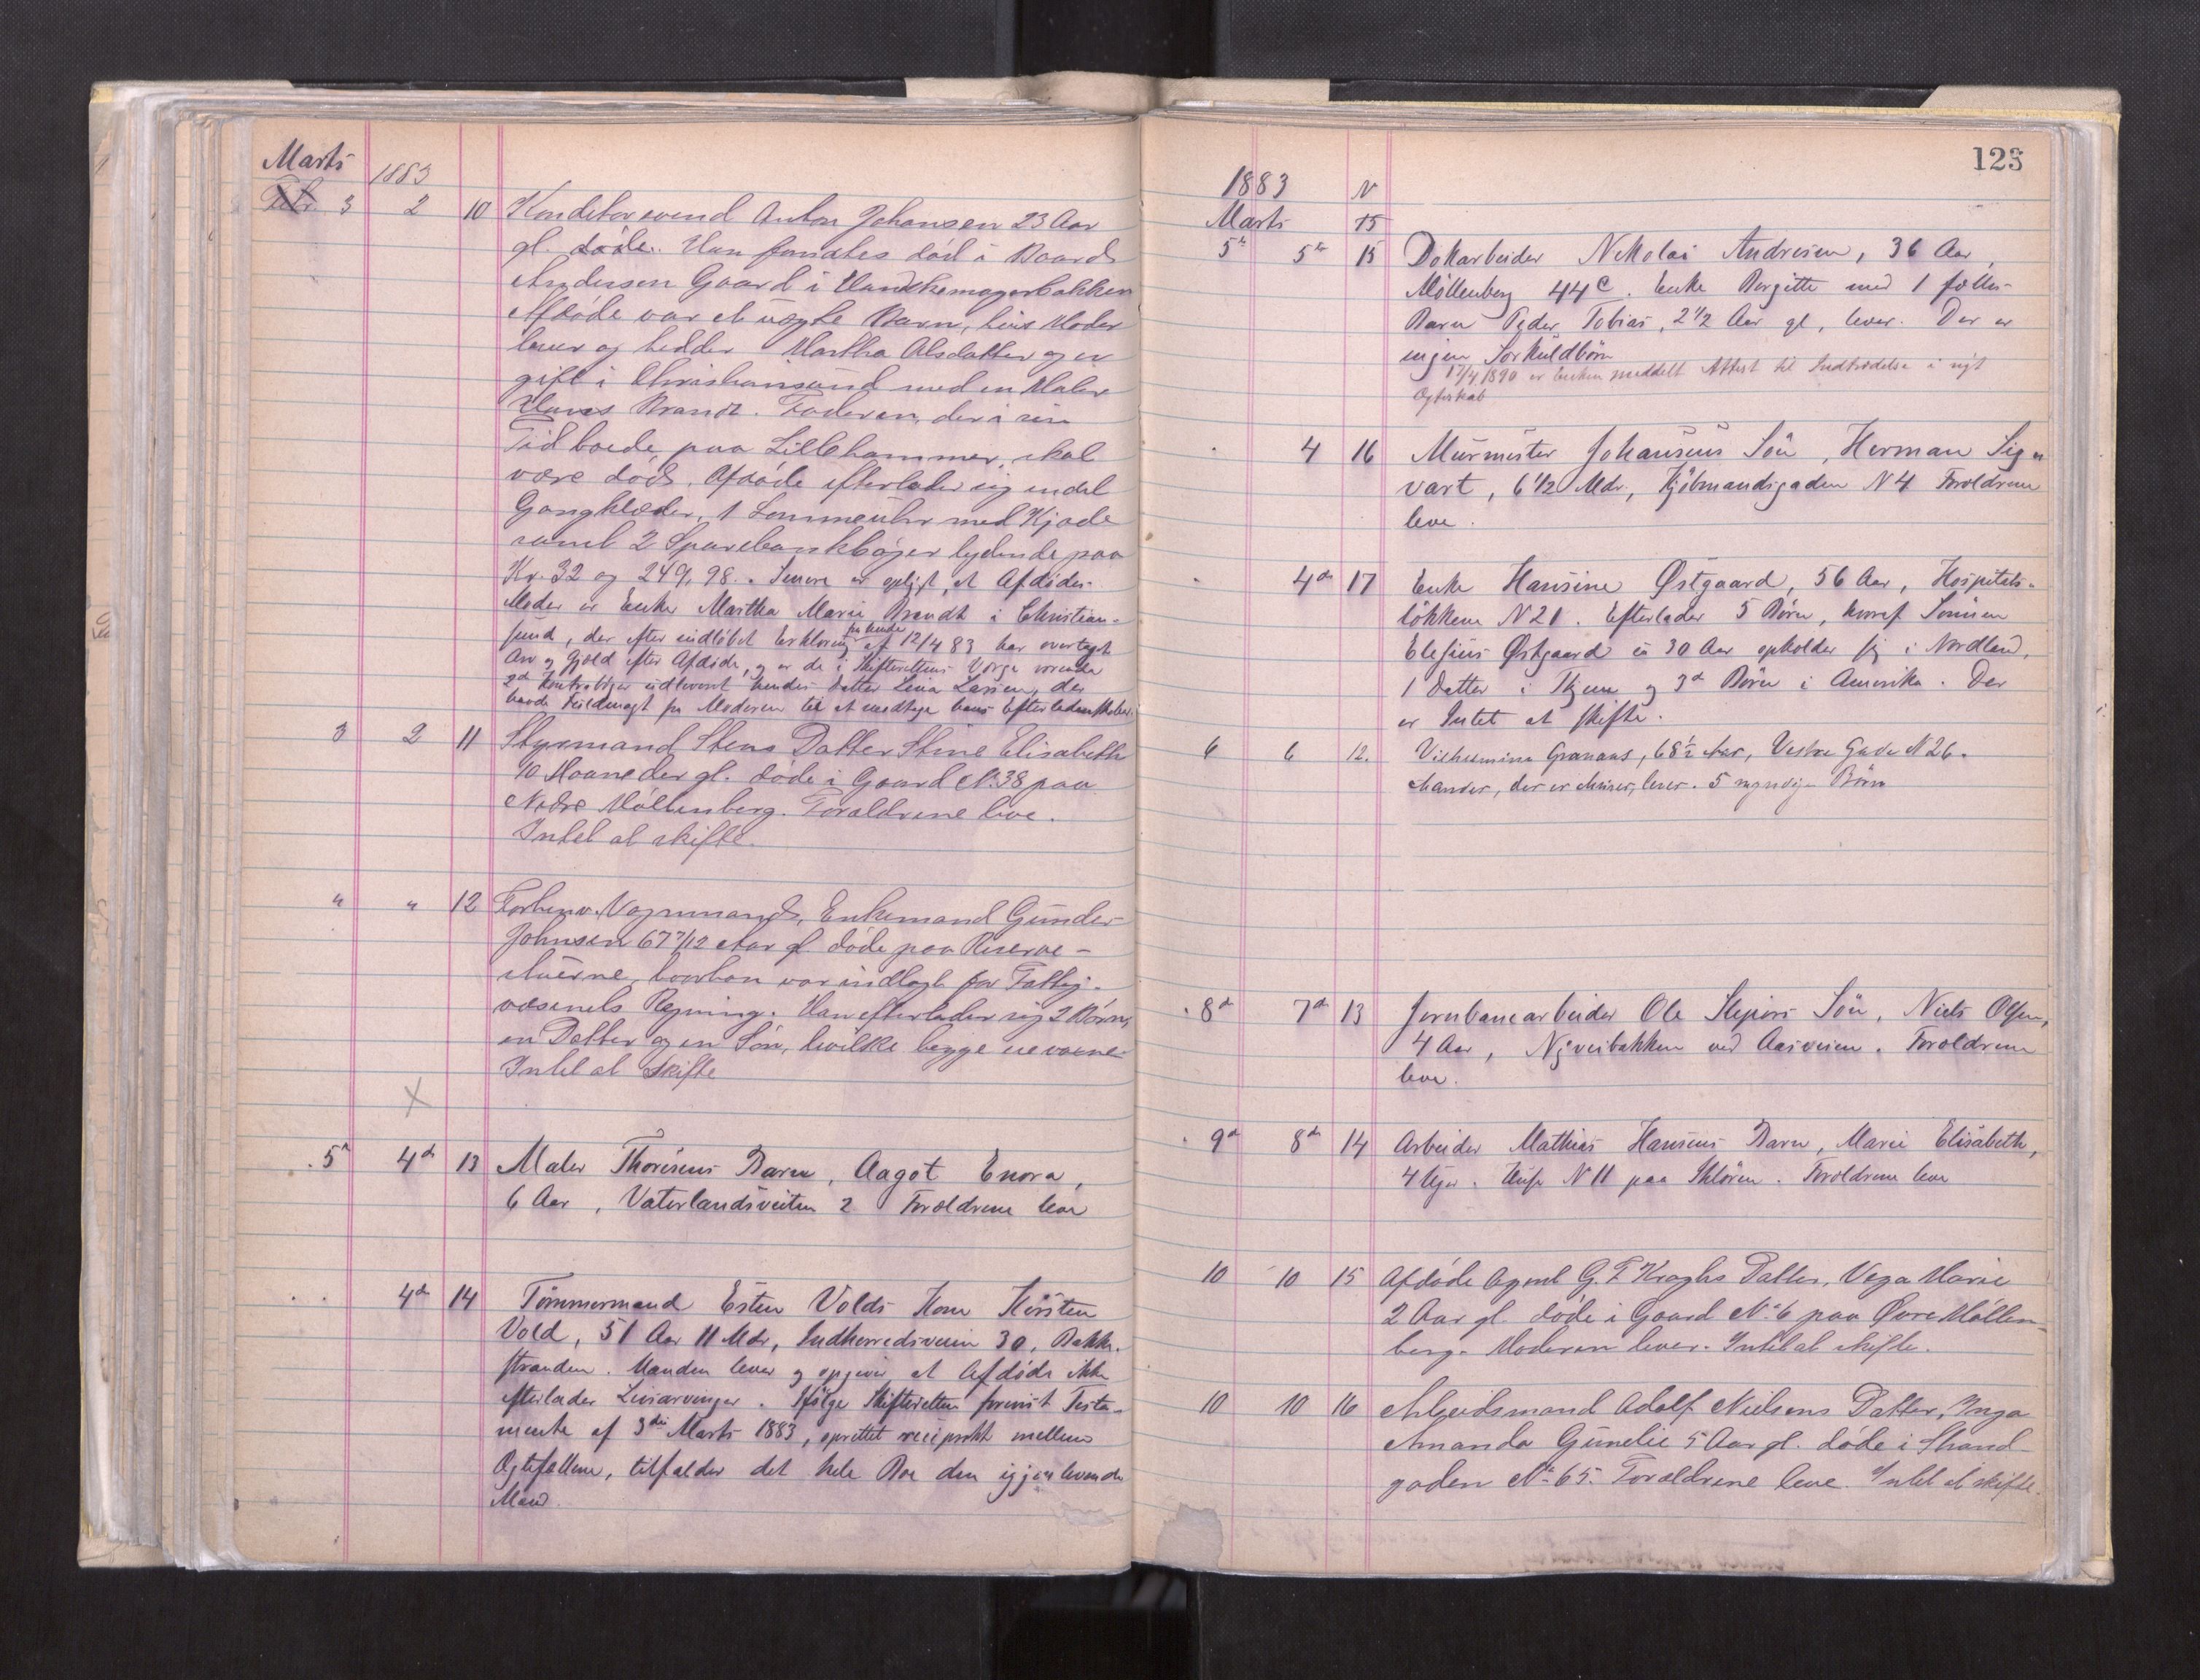 Marts 1883
Febr. 3 2 10 Konditorsvend Anton Johansen 23 Aar
gl. døde. Han fandtes død i Baard
Andersen Gaard i Handskemagerbakken
Afdøde var et uægte Barn, hvis Moder
lever og hedder Martha Olsdatter og er
gift i Christiansund med en Maler
Hans Brandt. Faderen, der i sin
Tid boede paa Lillehammer, skal
være død. Afdøde efterlader sig endel
Gangklæder, 1 Lommeuhr med Kjæde
samt 2 Sparebankbøger lydende paa
Kr. 32 og 249,98. Senere er oplyst, at Afdødes
Moder er Enke Martha Marie Brandt i Christian-
sund, der efter indløbet Erklæring fra hende af 12/4 83 har overtaget
Arv og Gjæld efter Afdøde, og er de i Skifterettens Værge værende
2de Kontrabøger udleveret hendes Datter Lina Larsen, der
havde Fuldmagt fra Moderen til at modtage hans Efterladenskaber.
3 2 11 Styrmand Stens Datter Stine Elisabeth
10 Maaneder gl. døde i Gaard No. 38 paa
Nedre Møllenberg. Forældrene leve.
Intet at skifte.
" " 12 Forhenv. Vognmand, Enkemand Gunder
Johnsen 67 7/12 Aar gl. døde paa Reserve-
stuerne, hvorhan var indlagt for Fattig-
væsenets Regning. Han efterlader sig 2 Børn,
en Datter og en Søn, hvilke begge ere voxne.
Intet at skifte
X
5te 4de 13 Maler Thorisens Barn, Aagot Enora,
6 Aar, Vaterlandsveiten 2 Forældrene leve
4de 14 Tømmermand Esten Volds Kone Kirsten
Vold, 51 Aar 11 Mdr, Indherredsveien 30, Bakke-
stranden. Manden lever og opgiver, at Afdøde ikke
efterlader Livsarvinger. Ifølge Skifteretten forevist Testa-
mente af 3die Marts 1883, oprettet reciprokt mellem
Ægtefællene, tilfalder det hele Bo den igjenlevende
Mand.
123
1883 N
Marts 15
5te 5te 15 Dokarbeider Nikolai Andresen, 36 Aar,
Møllenberg 44 C. Enke Bergitte med 1 fælles-
Barn Peder Tobias, 2 1/2 Aar gl, lever. Der er
ingen Særkuldbørn
17/4 1890 er Enken meddelt Attest til Indtrædelse i nyt
Ægteskab
4 16 Murmester Johansens Søn, Herman Sig-
vart, 6 1/2 Mdr., Kjøbmandsgaden N 4 Forældrene
leve.
4de 17 Enke Hansine Østgaard, 56 Aar, Hospitals-
løkken N 21. Efterlader 5 Børn, hvoraf Sønnen
Elesius Østgaard er 30 Aar opholder sig i Nordland,
1 Datter i Hjem og 3de Børn i Amerika. Der
er Intet at skifte.
6 6 12. Vilhelmina Granaas, 68 1/2 Aar, Vestre Gade N 26.
Manden, der er Murer, lever. 5 myndige Børn
8de 7de 13 Jernbanearbeider Ole Slepiørs Søn, Niels Olsen,
4 Aar, Nyveibakken ved Aasveien. Forældrene
leve.
9de 8de 14 Arbeider Mathias Hansens Barn, Marie Elisabeth,
4 Uger. Huse N 11 paa Ihløren. Forældrene leve
10 10 15 Afdøde Agent G. F. Kraghs Datter, Vega Marie
2 Aar gl. døde i Gaard No. 6 paa Øvre Møllen-
berg. Moderen lever. Intet at skifte.
10 10 16 Arbeidsmand Adolf Nielsens Datter, Inga
Amanda Gunelie 5 Aar gl. døde i Strand-
gaden No. 65. Forældrene leve. Intet at skifte.